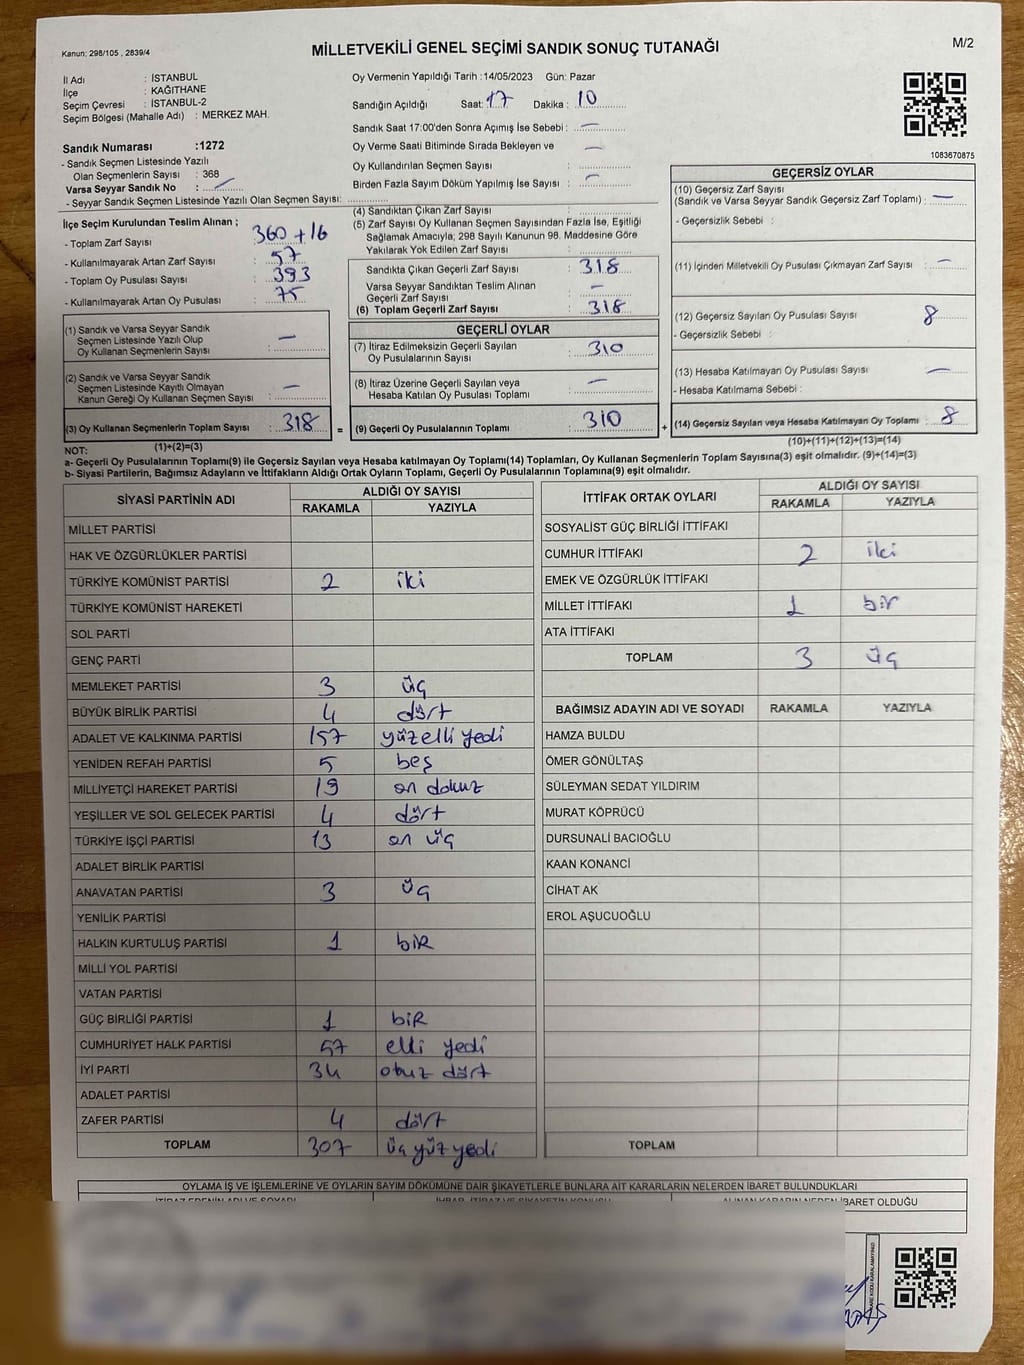 Kanun: 298/105 , 2839/4
MİLLETVEKİLİ GENEL SEÇİMİ SANDIK SONUÇ TUTANAĞI
M/2
İl Adı : İSTANBUL
İlçe : KAĞITHANE
Seçim Çevresi : İSTANBUL-2
Seçim Bölgesi (Mahalle Adı) : MERKEZ MAH.
Oy Vermenin Yapıldığı Tarih :14/05/2023 Gün: Pazar
Sandığın Açıldığı Saat: 17 Dakika : 10
Sandık Saat 17:00'den Sonra Açımış İse Sebebi : —
Oy Verme Saati Bitiminde Sırada Bekleyen ve —
Oy Kullandırılan Seçmen Sayısı :
Birden Fazla Sayım Döküm Yapılmış İse Sayısı : —
1083670875
Sandık Numarası :1272
- Sandık Seçmen Listesinde Yazılı
Olan Seçmenlerin Sayısı : 368
Varsa Seyyar Sandık No : —
- Seyyar Sandık Seçmen Listesinde Yazılı Olan Seçmen Sayısı:
İlçe Seçim Kurulundan Teslim Alınan ;
- Toplam Zarf Sayısı : 360 + 16
- Kullanılmayarak Artan Zarf Sayısı : 57
- Toplam Oy Pusulası Sayısı : 393
- Kullanılmayarak Artan Oy Pusulası : 75
(1) Sandık ve Varsa Seyyar Sandık
Seçmen Listesinde Yazılı Olup
Oy Kullanan Seçmenlerin Sayısı : —
(2) Sandık ve Varsa Seyyar Sandık
Seçmen Listesinde Kayıtlı Olmayan
Kanun Gereği Oy Kullanan Seçmen Sayısı : —
(3) Oy Kullanan Seçmenlerin Toplam Sayısı : 318 =
(1)+(2)=(3)
(4) Sandıktan Çıkan Zarf Sayısı :
(5) Zarf Sayısı Oy Kullanan Seçmen Sayısından Fazla İse, Eşitliği
Sağlamak Amacıyla, 298 Sayılı Kanunun 98. Maddesine Göre
Yakılarak Yok Edilen Zarf Sayısı :
Sandıkta Çıkan Geçerli Zarf Sayısı : 318
Varsa Seyyar Sandıktan Teslim Alınan
Geçerli Zarf Sayısı : —
(6) Toplam Geçerli Zarf Sayısı : 318
GEÇERLİ OYLAR
(7) İtiraz Edilmeksizin Geçerli Sayılan
Oy Pusulalarının Sayısı : 310
(8) İtiraz Üzerine Geçerli Sayılan veya
Hesaba Katılan Oy Pusulası Toplamı : —
(9) Geçerli Oy Pusulalarının Toplamı : 310 +
GEÇERSİZ OYLAR
(10) Geçersiz Zarf Sayısı
(Sandık ve Varsa Seyyar Sandık Geçersiz Zarf Toplamı) : —
- Geçersizlik Sebebi :
(11) İçinden Milletvekili Oy Pusulası Çıkmayan Zarf Sayısı : —
(12) Geçersiz Sayılan Oy Pusulası Sayısı : 8
- Geçersizlik Sebebi :
(13) Hesaba Katılmayan Oy Pusulası Sayısı : —
- Hesaba Katılmama Sebebi :
(14) Geçersiz Sayılan veya Hesaba Katılmayan Oy Toplamı : 8
(10)+(11)+(12)+(13)=(14)
NOT:
a- Geçerli Oy Pusulalarının Toplamı(9) ile Geçersiz Sayılan veya Hesaba katılmayan Oy Toplamı(14) Toplamları, Oy Kullanan Seçmenlerin Toplam Sayısına(3) eşit olmalıdır. (9)+(14)=(3)
b- Siyasi Partilerin, Bağımsız Adayların ve İttifakların Aldığı Ortak Oyların Toplam, Geçerli Oy Pusulalarının Toplamına(9) eşit olmalıdır.
SİYASİ PARTİNİN ADI ALDIĞI OY SAYISI
RAKAMLA YAZIYLA
MİLLET PARTİSİ
HAK VE ÖZGÜRLÜKLER PARTİSİ
TÜRKİYE KOMÜNİST PARTİSİ 2 iki
TÜRKİYE KOMÜNİST HAREKETİ
SOL PARTİ
GENÇ PARTİ
MEMLEKET PARTİSİ 3 üç
BÜYÜK BİRLİK PARTİSİ 4 dört
ADALET VE KALKINMA PARTİSİ 157 yüzelli yedi
YENİDEN REFAH PARTİSİ 5 beş
MİLLİYETÇİ HAREKET PARTİSİ 19 on dokuz
YEŞİLLER VE SOL GELECEK PARTİSİ 4 dört
TÜRKİYE İŞÇİ PARTİSİ 13 on üç
ADALET BİRLİK PARTİSİ
ANAVATAN PARTİSİ 3 üç
YENİLİK PARTİSİ
HALKIN KURTULUŞ PARTİSİ 1 biR
MİLLİ YOL PARTİSİ
VATAN PARTİSİ
GÜÇ BİRLİĞİ PARTİSİ 1 biR
CUMHURİYET HALK PARTİSİ 57 elli yedi
İYİ PARTİ 34 otuz dört
ADALET PARTİSİ
ZAFER PARTİSİ 4 dört
TOPLAM 307 üç yüz yedi
İTTİFAK ORTAK OYLARI ALDIĞI OY SAYISI
RAKAMLA YAZIYLA
SOSYALİST GÜÇ BİRLİĞİ İTTİFAKI
CUMHUR İTTİFAKI 2 iki
EMEK VE ÖZGÜRLÜK İTTİFAKI
MİLLET İTTİFAKI 1 bir
ATA İTTİFAKI
TOPLAM 3 üç
BAĞIMSIZ ADAYIN ADI VE SOYADI RAKAMLA YAZIYLA
HAMZA BULDU
ÖMER GÖNÜLTAŞ
SÜLEYMAN SEDAT YILDIRIM
MURAT KÖPRÜCÜ
DURSUNALİ BACIOĞLU
KAAN KONANCİ
CİHAT AK
EROL AŞUCUOĞLU
TOPLAM
OYLAMA İŞ VE İŞLEMLERİNE VE OYLARIN SAYIM DÖKÜMÜNE DAİR ŞİKAYETLERLE BUNLARA AİT KARARLARIN NELERDEN İBARET BULUNDUKLARI
İTİRAZ EDENİN ADI VE SOYADI İHBAR, İTİRAZ VE ŞİKAYETİN KONUSU ALINAN KARARIN NEDEN İBARET OLDUĞU